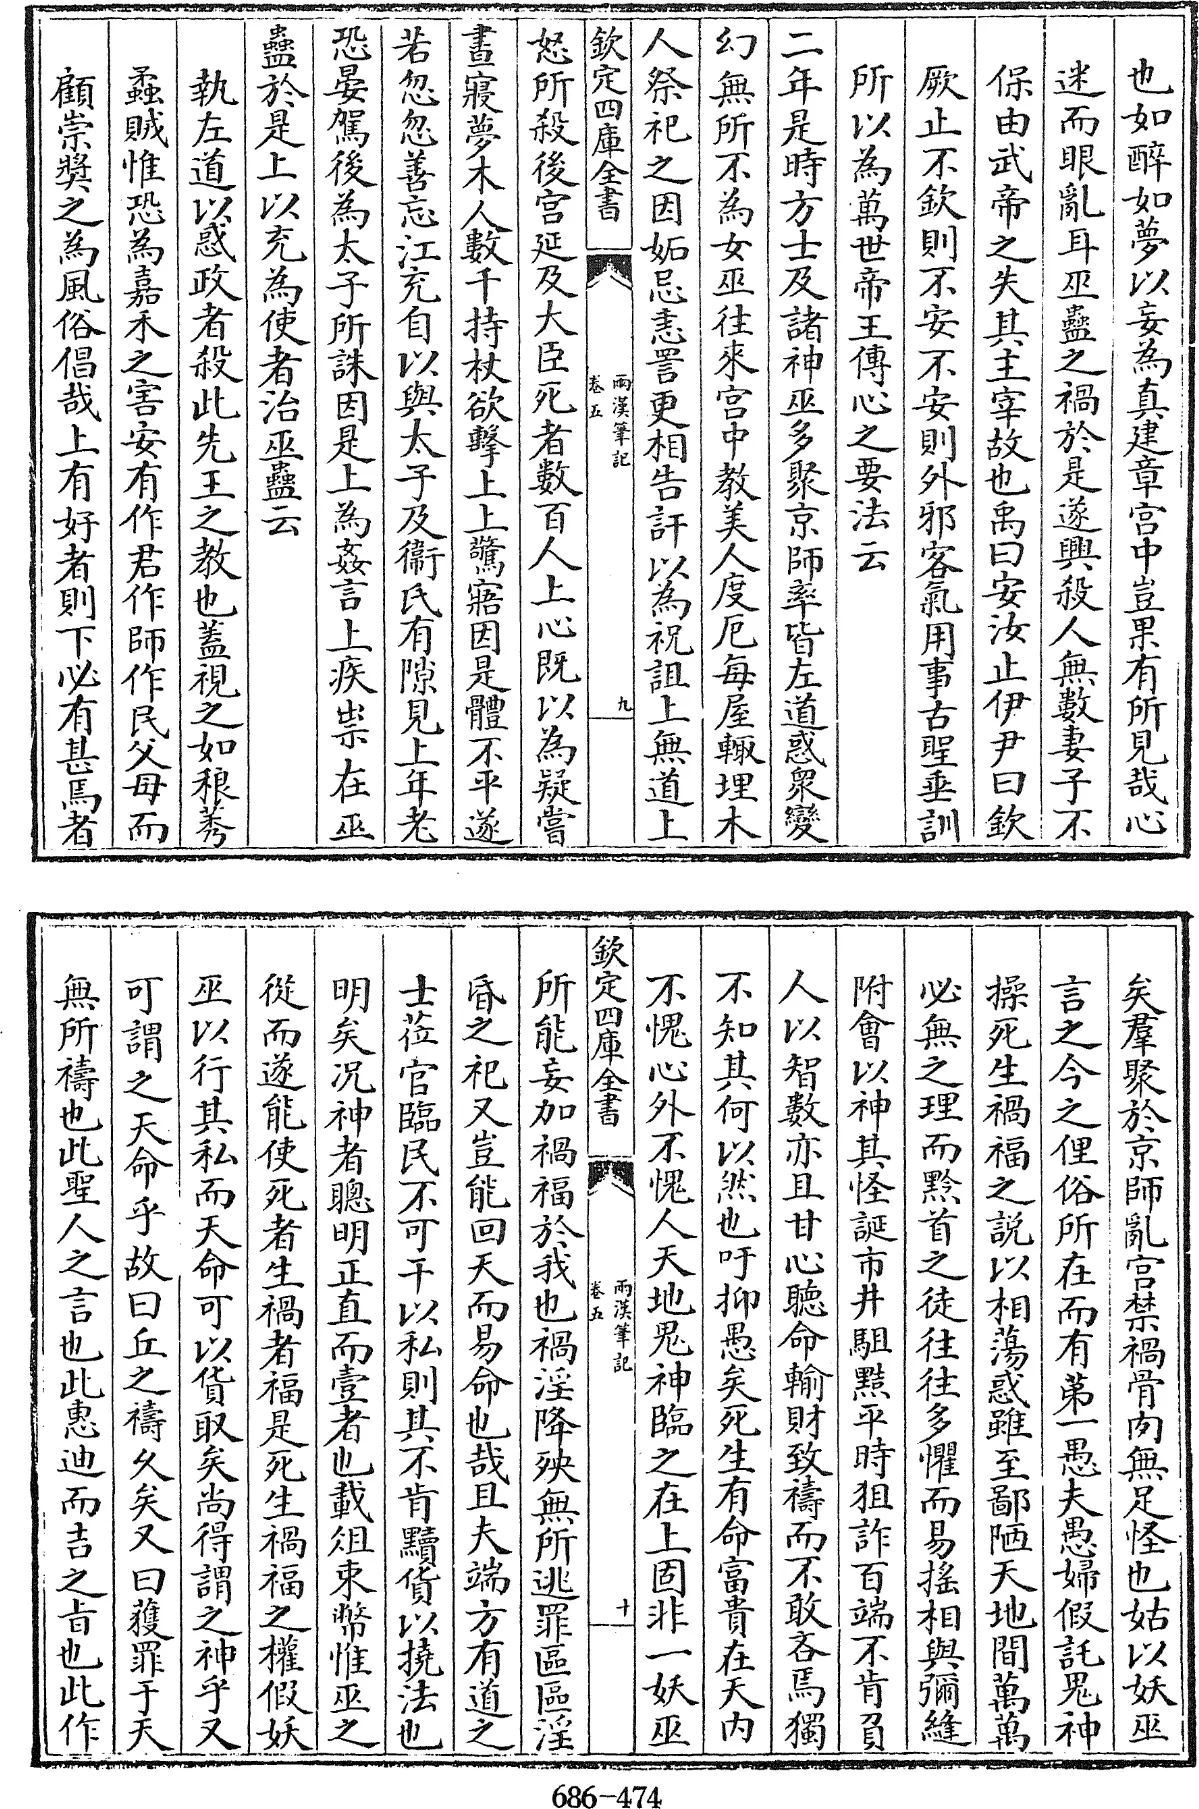 也如醉如夢以妄為真建章宫中豈果有所見哉心
迷而眼亂耳巫蠱之禍於是遂興殺人無數妻子不
保由武帝之失其主宰故也禹曰安汝止伊尹曰欽
厥止不欽則不安不安則外邪客氣用事古聖垂訓
所以為萬世帝王傳心之要法云
二年是時方士及諸神巫多聚京師率皆左道惑衆變
幻無所不為女巫往來宫中教美人度厄每屋輙埋木
人祭祀之因妬忌恚詈更相告訐以為祝詛上無道上
欽定四庫全書
兩漢筆記
卷五
九
怒所殺後宫延及大臣死者數百人上心既以為疑嘗
晝寢夢木人數千持杖欲擊上上驚寤因是體不平遂
若忽忽善忘江充自以與太子及衞氏有隙見上年老
恐晏駕後為太子所誅因是上為姦言上疾祟在巫
蠱於是上以充為使者治巫蠱云
執左道以惑政者殺此先王之教也蓋視之如稂莠
蟊賊惟恐為嘉禾之害安有作君作師作民父母而
顧崇獎之為風俗倡哉上有好者則下必有甚焉者
矣羣聚於京師亂宫禁禍骨肉無足怪也姑以妖巫
言之今之俚俗所在而有第一愚夫愚婦假託鬼神
操死生禍福之説以相蕩惑雖至鄙陋天地間萬萬
必無之理而黔首之徒往往多懼而易搖相與彌縫
附會以神其怪誕市井駔黠平時狙詐百端不肯負
人以智數亦且甘心聽命輸財致禱而不敢吝焉獨
不知其何以然也吁抑愚矣死生有命富貴在天内
不愧心外不愧人天地鬼神臨之在上固非一妖巫
欽定四庫全書
兩漢筆記
卷五
十
所能妄加禍福於我也禍淫降殃無所逃罪區區淫
昏之祀又豈能回天而易命也哉且夫端方有道之
士莅官臨民不可干以私則其不肯黷貨以撓法也
明矣况神者聰明正直而壹者也載俎束幣惟巫之
從而遂能使死者生禍者福是死生禍福之權假妖
巫以行其私而天命可以貨取矣尚得謂之神乎又
可謂之天命乎故曰丘之禱久矣又曰獲罪于天
無所禱也此聖人之言也此惠迪而吉之旨也此作
686-474